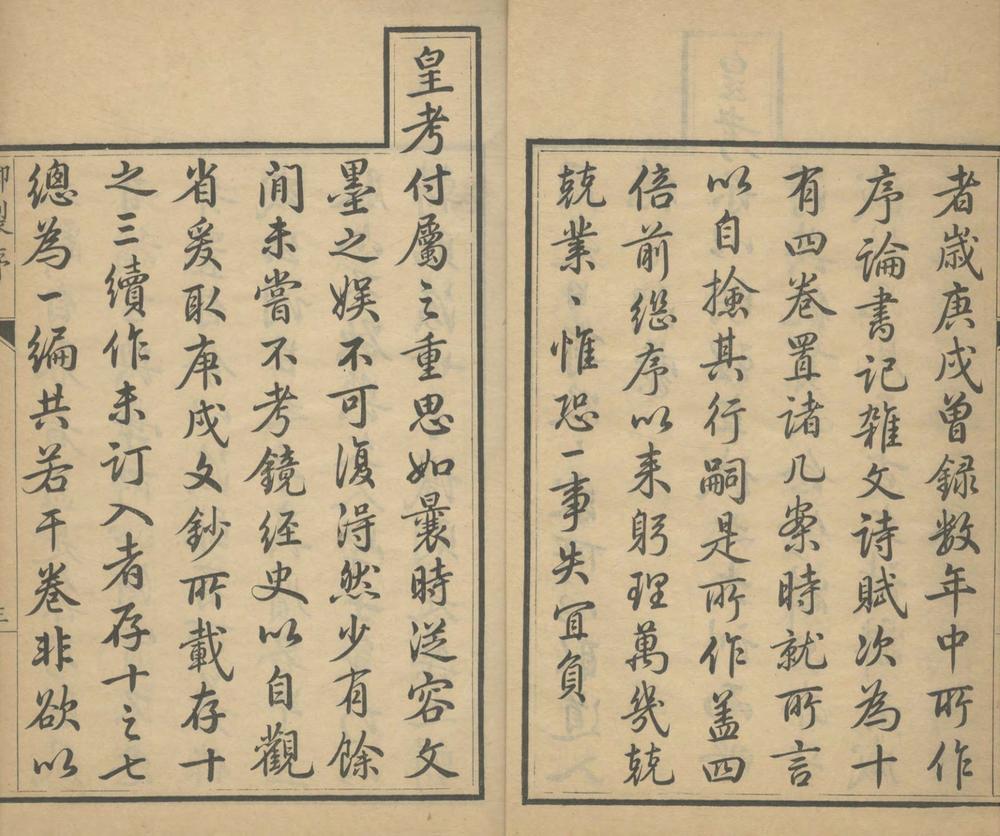 者歲庚戌曾録数年中所作
序論書記雜文詩賦次為十
有四卷置諸几案時就所言
以自撿其行嗣是所作盖四
倍前繼序以来躬理萬幾兢
兢業〻惟恐一事失宜負
皇考付屬之重思如曩時從容文
墨之娱不可復淂然少有餘
閒未嘗不考鏡経史以自觀
省爰取庚戌文鈔所載存十
之三續作未订入者存十之七
總為一編共若干卷非欲以